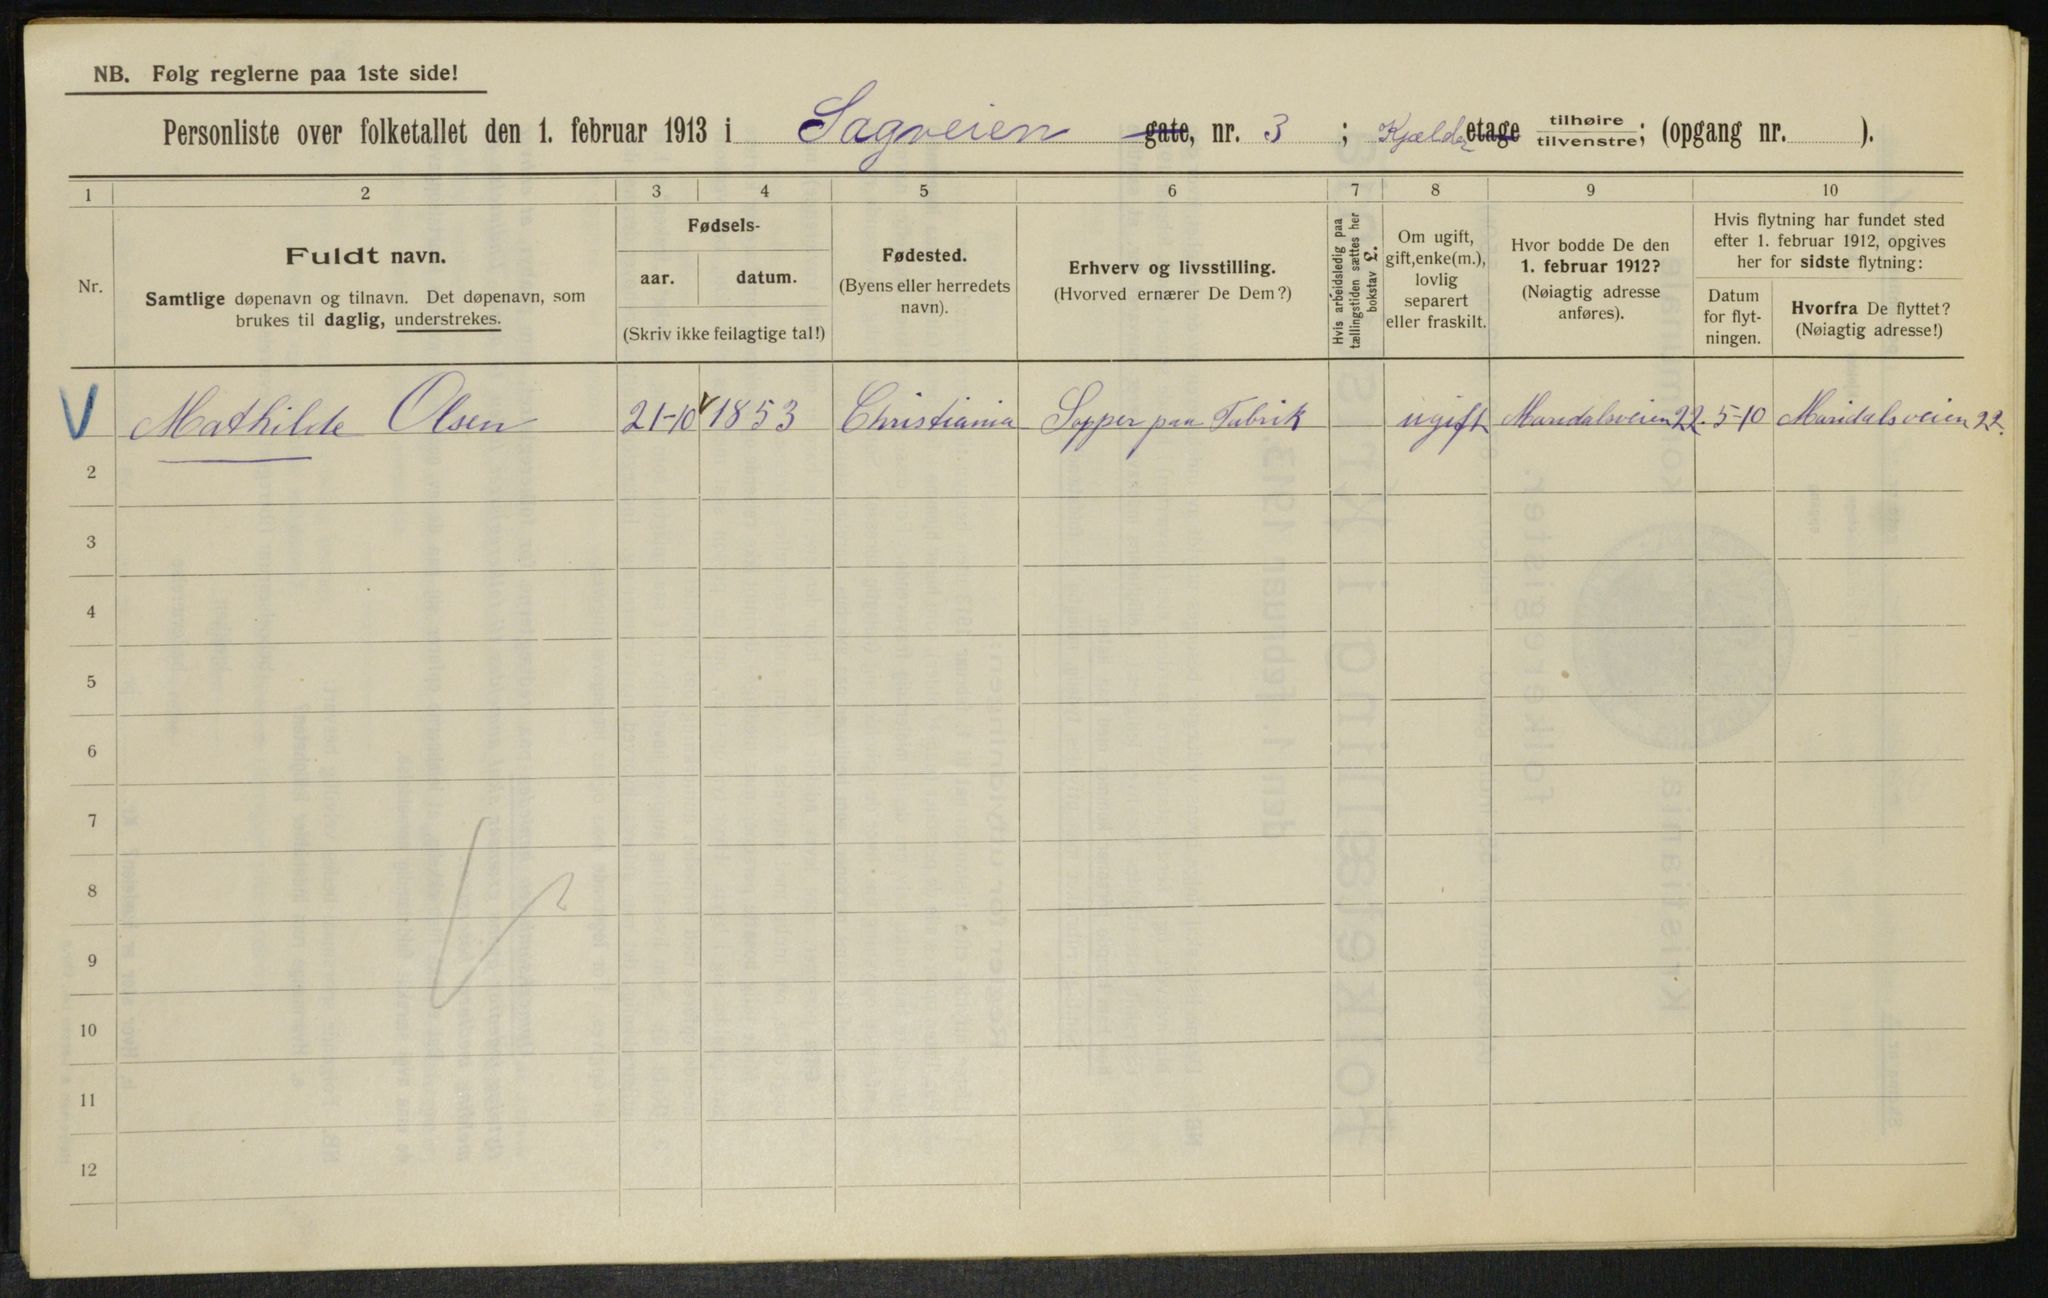 NB. Følg reglerne paa 1ste side!
Personliste over folketallet den 1. februar 1913 i Sagveien gate, nr. 3 ; Kjælder etage tilhøire tilvenstre; (opgang nr. ).
1 2 3 4 5 6 7 8 9 10
Nr.
Fuldt navn.
Samtlige døpenavn og tilnavn. Det døpenavn, som
brukes til daglig, understrekes.
Fødsels-
aar. datum.
(Skriv ikke feilagtige tal!)
Fødested.
(Byens eller herredets
navn).
Erhverv og livsstilling.
(Hvorved ernærer De Dem?)
Hvis arbeidsledig paa
tællingstiden sættes her
bokstav £.
Om ugift,
gift, enke(m.),
lovlig
separert
eller fraskilt.
Hvor bodde De den
1. februar 1912?
(Nøiagtig adresse
anføres).
Hvis flytning har fundet sted
efter 1. februar 1912, opgives
her for sidste flytning:
Datum
for flyt-
ningen.
Hvorfra De flyttet?
(Nøiagtig adresse!)
Mathilde Olsen 21-10 1853 Christiania Sopper paa Fabrik ugift Maridalsveien 22. 5-10 Maridalsveien 22.
2
3
4
5
6
7
8
9
10
11
12